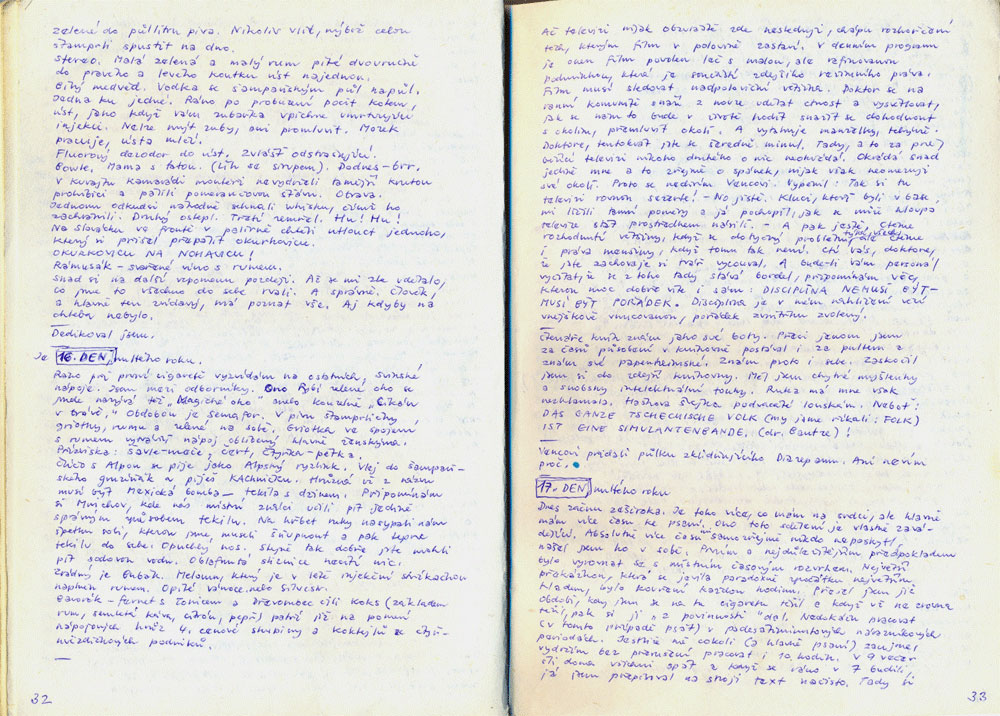 zelené do půllitru piva. Nikoliv vlít, nýbrž celou
štamprli spustit na dno.
Stereo. Malá zelená a malý rum pité dvouručně
do pravého a levého koutku úst najednou.
Bílý medvěd. Vodka se šampaňským půl napůl.
Jedna ku jedné. Ráno po probuzení pocit kolem
úst, jako když vám zubařka vpíchne umrtvující
injekci. Nelze mýt zuby, ani promluvit. Mozek
pracuje, ústa mlčí.
Fluorový dezodor do úst. Zvlášť odstrašující.
Bowle. Mama s tatou. (Líh se sirupem). Dodnes - brr.
V Kuvajtu kamarádi montéři nevydrželi tamější krutou
prohibici a pálili pomerančovou šťávu. Otrava.
Jednomu odkudsi náhodně sehnali whisku, čímž ho
zachránili. Druhý oslepl. Třetí zemřel. Hu! Hu!
Na Slovácku ve frontě v palírně chtěli utlouct jednoho,
který si přišel přepálit okurkovicu.
OKURKOVICU NA NOHAVICU!
Rámusák - svařené víno s rumem.
Snad si na další vzpomenu později. Až se mi zle udělalo,
co jsme to všechno do sebe rvali. A správně. Člověk,
a hlavně ten zvídavý, má poznat vše. Aj kdyby na
chleba nebylo.
Dedikoval jsem.
Je 16. DEN, nultého roku.
Ráno při první cigaretě vyzvídám na ostatních, svinské
nápoje. Jsem mezi odborníky. Ono rybí zelené oko se
jinde nazývá též "Magické oko" nebo konečně "Cikán
v trávě". Obdobou je Semafor. V pivu štamprličky
griotky, rumu a zelené na sobě. Griotka ve spojení
s rumem vytváří nápoj oblíbený hlavně ženskýma.
Prýmiska: Šavle-meče, Čert, Čtyřka-pětka.
Čůčo s Alpou se pije jako Alpský ryzlink. Vlej do šampaň-
ského gruziňák a piješ KAchničku. Hrůzná už z názvu
musí být Mexická bomba - tekila s džinem. Připomínám
si Mnichov, kde nás místní znalci učili pít jedině
správným způsobem tekilu. Na hřbet ruky nasypali nám
špetku soli, kterou jsme museli šňupnout a pak teprve
tekilu do sebe. Opuchlý nos. Stejně tak dobře jste mohli
pít sodovou vodu. Oblafnutá sliznice necítí nic.
Zrádný je Bubák. Meloun, který je v létě injekční stříkačkou
naplněn rumem. Opité vánoce nebo Silvestr.
Bavorák - fernet s tonicem a Dřevomor čili Koks (základem
rum, semletá káva, citrón, pepř) patří již na pomezí
nápojových hrůz 4. cenové skupiny a koktejlů ze čtyř-
hvězdičkových podniků.
32
Ač televizi nijak obzvláště zde nesleduji, chápu rozhořčení
těch, kterým film v polovině zastaví. V denním programu
je onen film povolen leč s malou, ale rafinovanou
podmínkou, která je součástí zdejšího režimního práva.
Film musí sledovat nadpoloviční většina. Doktor se na
ranní komunitě snaží z nouze udělat ctnost a vysvětlovat,
jak se nám to bude v životě hodit snažit se dohodnout
s okolím, přemluvit okolí. A vytahuje manželky, tchýně.
Doktore, tentokrát jste se šeredně minul. Tady, a to za pro-
bíhající televizi nikoho druhého o nic neokrádá. Okrádá snad
jedině mne a to zřejmě o spánek, nijak však neomezuji
své okolí. Proto se nedivím Vencovi. Vypěnil: Tak si tu
televizi rovnou sežerte! - No jistě. Kluci, kteří byli v base,
mi líčili tamní poměry a já pochopil, jak se může hloupá
televize stát prostředkem násilí. - A pak ještě, Ctěme
rozhodnutí většiny, když se dotyčný problém týká všech, ale ctěme
i práva menšiny, když tomu tak není. Ctí vás, doktore,
že jste zachoval si tvář vycouval. A bude-li vám personál
vyčítat, že se z toho tady stává bordel, připomínám věc,
kterou moc dobře víte i sám: DISCIPLÍNA NEMUSÍ BÝT -
MUSÍ BÝT POŘÁDEK. Disciplína je v mém náhlížení věcí
vnějškově vnucovanou, pořádek zvnitřku zvolený.
Čtenáře knih znám jako své boty. Práci jenom jsem
za časů působení v knihovně postával i za pultem a
znám své Pappenheimské. Znám proto i sebe. Zaskočil
jsem si do zdejší knihovny. Měl jsem chytré myšlenky
a snobsky intelektuální touhy. Ruka má mne však
nezklamala. Haškova Švejka podvacáté louskám. Neboť:
DAS GANZE TSCHECHISCHE VOLK (my jsme říkali: FOLK)
IST EINE SIMULANTENBANDE, (dr. Bautze)!
Vencovi přidali půlku zklidňujícího Diazepamu. Ani nevím
proč.
17. DEN, nultého roku
Dnes začnu zeširoka. Je toho více, co mám na srdci, ale hlavně
mám více času ke psaní. Ono toto sdělení je vlastně zavá-
dějící. Absolutně více času samozřejmě nikdo neposkytl,
našel jsem ho v sobě. Prvním a nejdůležitějším předpokladem
bylo vyrovnat se s místním časovým rozvrhem. Největší
překážkou, která se jevila paradoxně zpočátku největším
kladem, bylo kouření každou hodinu. Přešel jsem již
období, kdy jsem se na tu cigaretu těšil a když ne zrovna
těšil, pak si ji "z povinnosti" dal. Nedokážu pracovat
(v tomto případě psát) v padesátiminutových návazníkových
periodách. Jestliže mě cokoli (a hlavně psaní) zaujme,
vydržím bez přerušení pracovat i 10 hodin. V 9 večer
šli doma všichni spát a když se ráno v 7 budili,
já jsem přepisoval na stroji text načisto. Tady si
33